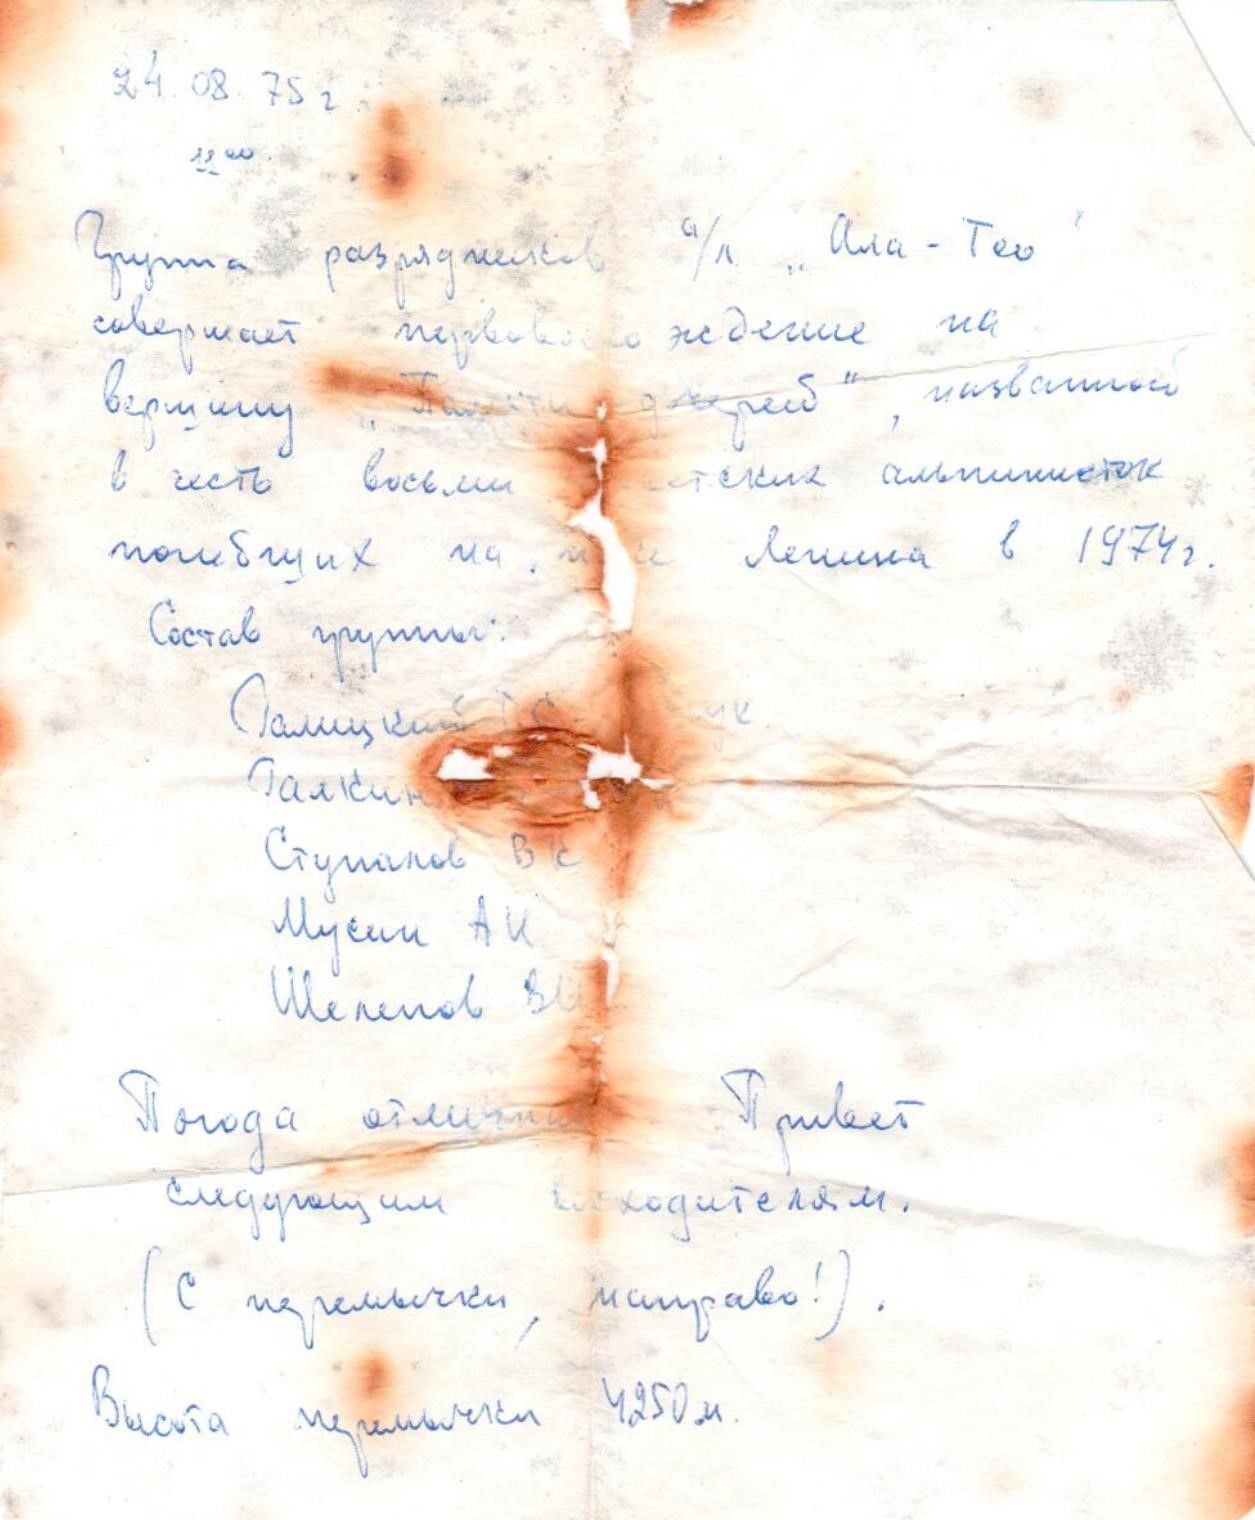 24.08.75г
11⁰⁰
Группа разрядников а/л „Ала-Тоо"
совершает первовосхождение на
вершину „Памяти дочерей", названной
в честь восьми альпинисток
погибших на Ленина в 1974г.
Состав группы:
Галицкий
Галкин
Ступаков В К
Мусин А И
Шелепов В И
Погода Привет
следующим восходителям.
(С перемычки, направо!).
Высота перемычки 4250м.